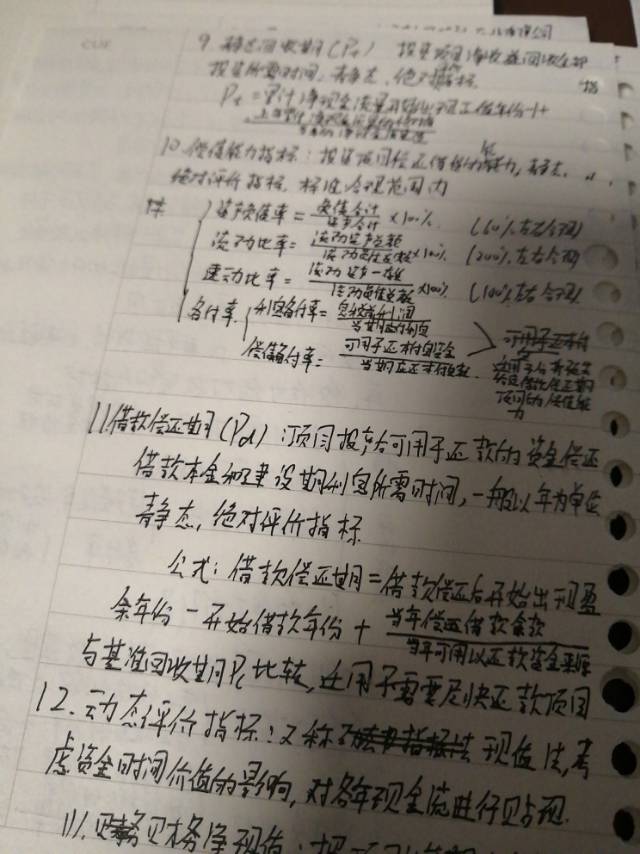 CUE
9. 静态回收期(Pt) 投资项目净收益回收全部
投资所需时间,静态、绝对指标.
Pt = 累计净现金流量开始出现正值年份-1+
上年累计净现金流量的绝对值
当年净现金流量
10. 偿债能力指标:投资项目偿还借款的能力,静态.
绝对评价指标. 标准合理范围内
资产负债率 = 负债合计/资产合计 ×100%. (60%左右合理)
流动比率 = 流动资产总额/流动负债总额 ×100% (200%左右合理)
速动比率 = 流动资产-存货/流动负债总额 ×100% (100%左右合理)
备付率 利息备付率 = 息税前利润/当期应付利息
偿债备付率 = 可用于还本付息资金/当期应还本付息额
11.借款偿还期(Pd):项目投产后可用于还款的资金偿还
借款本金和建设期利息所需时间,一般以年为单位
静态、绝对评价指标
公式:借款偿还期=借款偿还后开始出现盈
余年份 - 开始借款年份 + 当年偿还借款余款/当年可用以还款资金来源
与基准回收期Pc比较,适用于需要尽快还款项目
12.动态评价指标:又称现值法,考
虑资金时间价值的影响,对各年现金流进行贴现.
(1).财务净现值:把